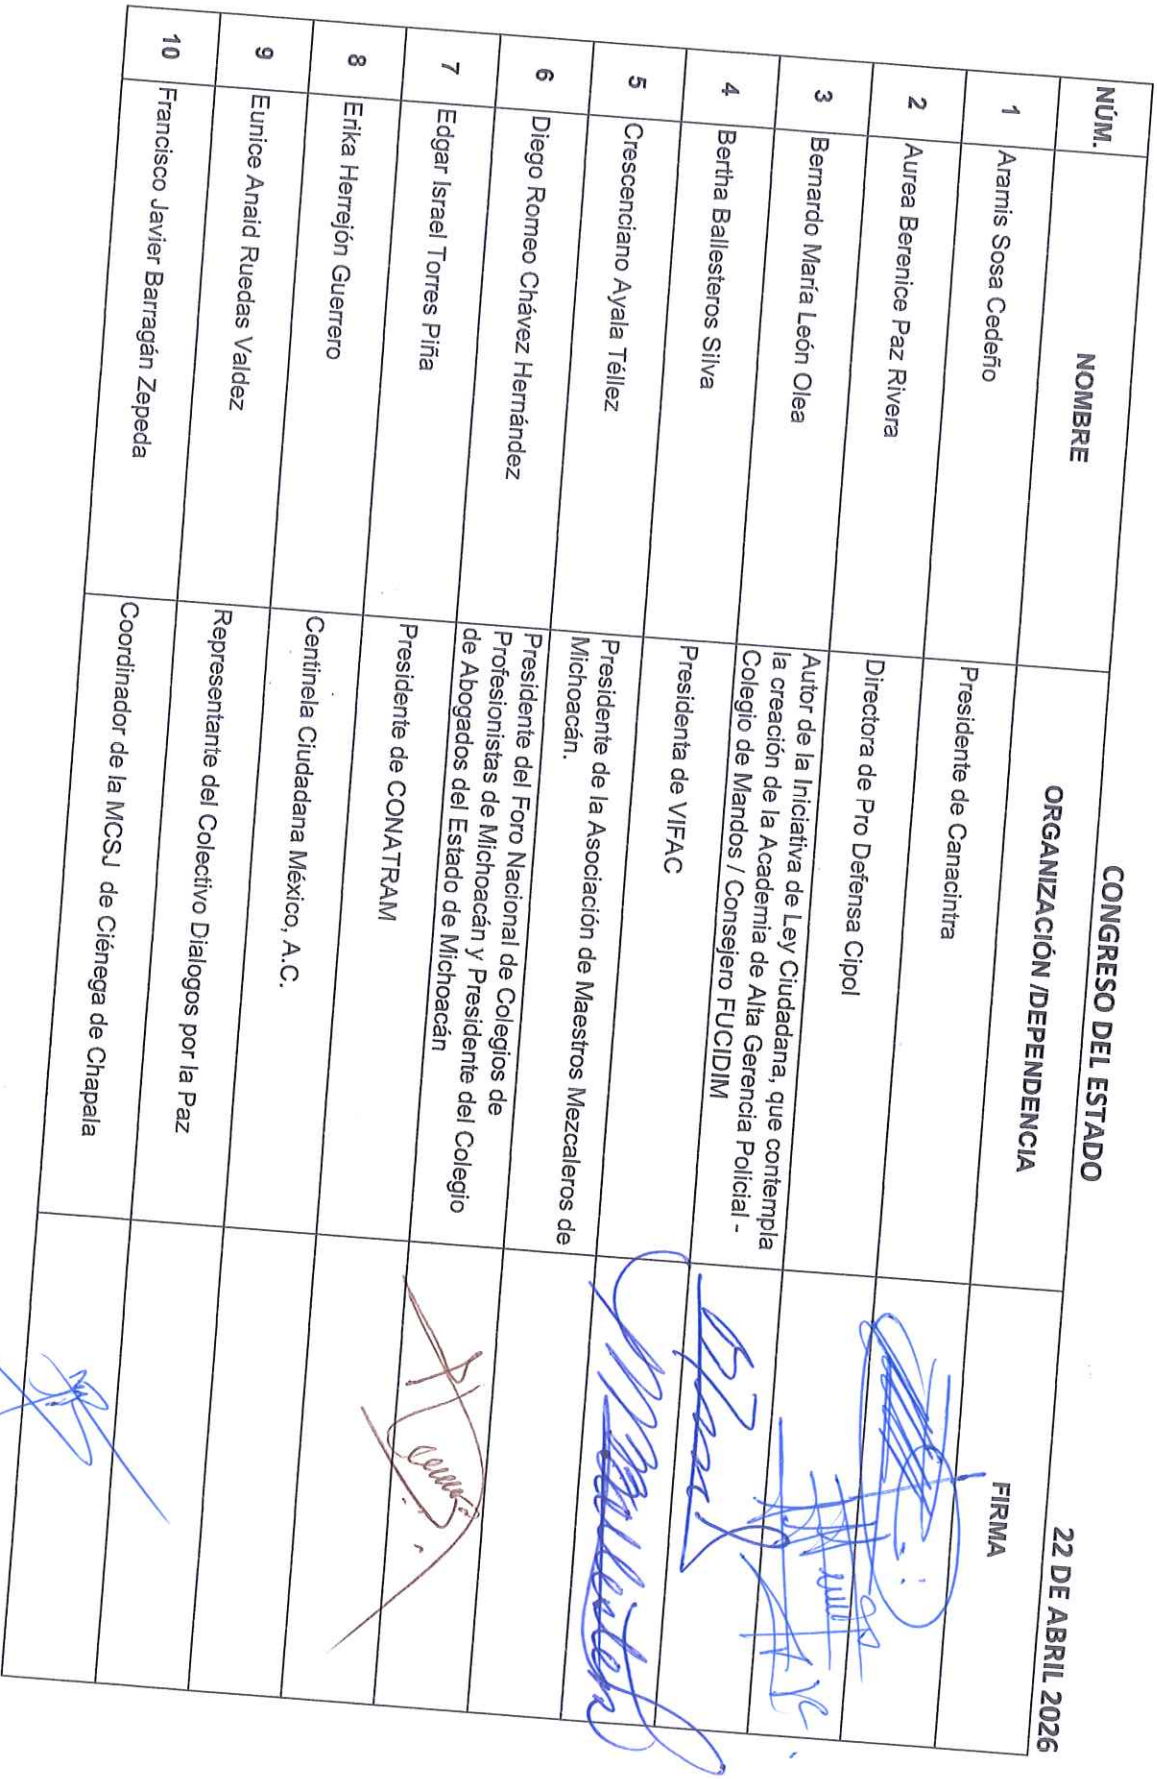 CONGRESO DEL ESTADO
22 DE ABRIL 2026
NÚM. NOMBRE ORGANIZACIÓN /DEPENDENCIA FIRMA
1 Aramis Sosa Cedeño Presidente de Canacintra
2 Aurea Berenice Paz Rivera Directora de Pro Defensa Cipol
3 Bernardo María León Olea Autor de la Iniciativa de Ley Ciudadana, que contempla
la creación de la Academia de Alta Gerencia Policial -
Colegio de Mandos / Consejero FUCIDIM
4 Bertha Ballesteros Silva Presidenta de VIFAC
5 Crescenciano Ayala Téllez Presidente de la Asociación de Maestros Mezcaleros de
Michoacán.
6 Diego Romeo Chávez Hernández Presidente del Foro Nacional de Colegios de
Profesionistas de Michoacán y Presidente del Colegio
de Abogados del Estado de Michoacán
7 Edgar Israel Torres Piña Presidente de CONATRAM
8 Erika Herrejón Guerrero Centinela Ciudadana México, A.C.
9 Eunice Anaid Ruedas Valdez Representante del Colectivo Dialogos por la Paz
10 Francisco Javier Barragán Zepeda Coordinador de la MCSJ de Ciénega de Chapala